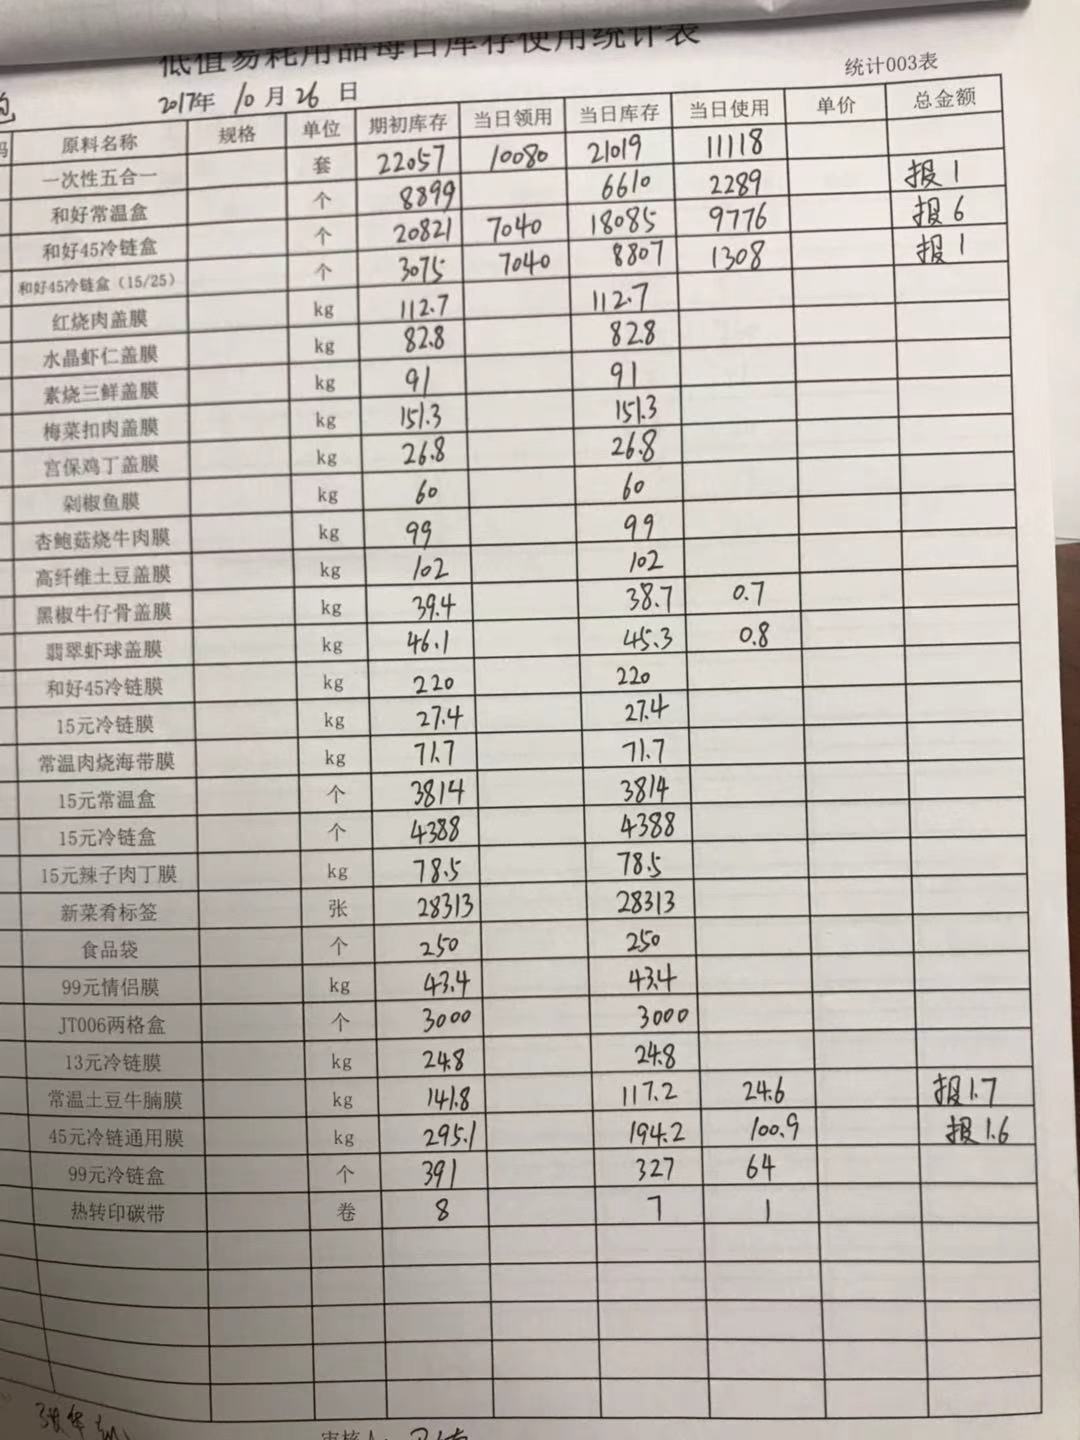 低值易耗用品每日库存使用统计表
统计003表
2017年 10月26日
原料名称 规格 单位 期初库存 当日领用 当日库存 当日使用 单价 总金额
一次性五合一 套 22057 10080 21019 11118
和好常温盒 个 8899 6610 2289 报1
和好45冷链盒 个 20821 7040 18085 9776 报6
和好45冷链盒（15/25） 个 3075 7040 8807 1308 报1
红烧肉盖膜 kg 112.7 112.7
水晶虾仁盖膜 kg 82.8 82.8
素烧三鲜盖膜 kg 91 91
梅菜扣肉盖膜 kg 151.3 151.3
宫保鸡丁盖膜 kg 26.8 26.8
剁椒鱼膜 kg 60 60
杏鲍菇烧牛肉膜 kg 99 99
高纤维土豆盖膜 kg 102 102
黑椒牛仔骨盖膜 kg 39.4 38.7 0.7
翡翠虾球盖膜 kg 46.1 45.3 0.8
和好45冷链膜 kg 220 220
15元冷链膜 kg 27.4 27.4
常温肉烧海带膜 kg 71.7 71.7
15元常温盒 个 3814 3814
15元冷链盒 个 4388 4388
15元辣子肉丁膜 kg 78.5 78.5
新菜肴标签 张 28313 28313
食品袋 个 250 250
99元情侣膜 kg 43.4 43.4
JT006两格盒 个 3000 3000
13元冷链膜 kg 24.8 24.8
常温土豆牛腩膜 kg 141.8 117.2 24.6 报1.7
45元冷链通用膜 kg 295.1 194.2 100.9 报1.6
99元冷链盒 个 391 327 64
热转印碳带 卷 8 7 1
审核人: